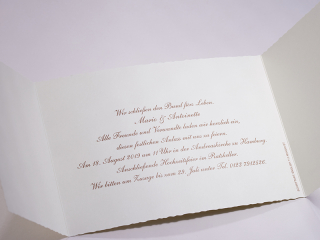 Wir schließen den Bund fürs Leben.
Mario & Antoinette
Alle Freunde und Verwandte laden wir herzlich ein,
diesen festlichen Anlass mit uns zu feiern.
Am 18. August 2013 um 11 Uhr in der Andreaskirche in Hamburg
Anschließende Hochzeitsfeier im Ratskeller.
Wir bitten um Zusage bis zum 29. Juli unter Tel. 0123 7943526.